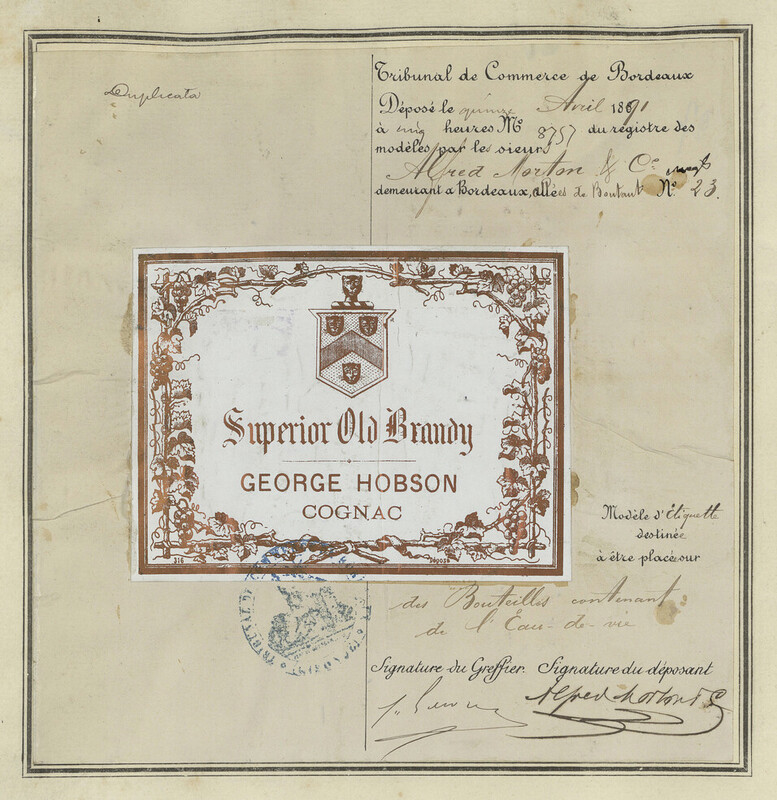 Duplicata
Tribunal de Commerce de Bordeaux
Déposé le quinze Avril 1891
à cinq heures No 8757 du régistre des
modèles par les sieurs
Alfred Morton & Ce negts
demeurant à Bordeaux, allées de Boutaut No 23.
Superior Old Brandy
GEORGE HOBSON
COGNAC
316
DÉPOSÉ
Modèle d'Etiquette
destinée
à être placée sur
des Bouteilles contenant
de l'Eau-de-vie
TRIBUNAL DE
Signature du Greffier. Signature du déposant
Alfred Morton & Ce